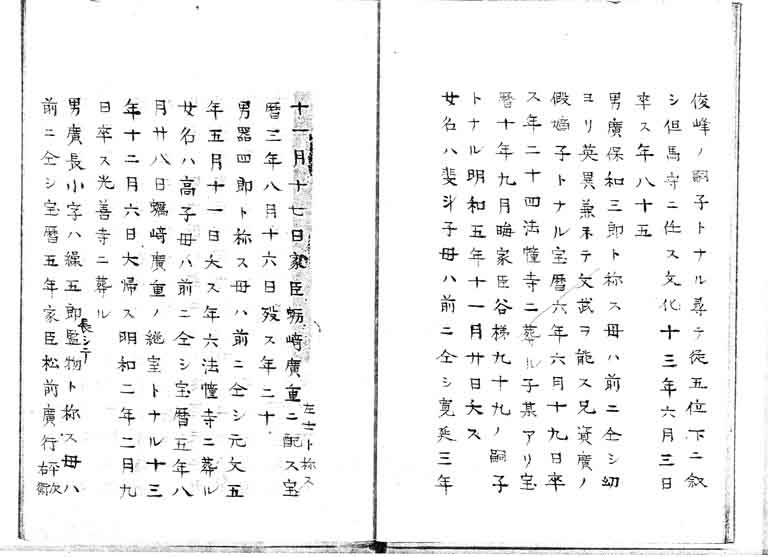 俊峰ノ嗣子トナル尋テ従五位下ニ叙
シ但馬守ニ任ス文化十三年六月三日
卒ス年八十五
男廣保和三郎ト称ス母ハ前ニ仝シ幼
ヨリ英異兼テ文武ヲ能ス兄資廣ノ
假嫡子トナル宝暦六年六月十九日卒
ス年二十四法幢寺ニ葬ル子某アリ宝
暦十年九月晦家臣谷梯九十九ノ嗣子
トナル明和五年十一月廿日夭ス
女名ハ斐斗子母ハ前ニ仝シ寛延三年
十一月十七日家臣蛎﨑廣重ニ配ス宝
左士ト称ス
暦三年八月十六日歿ス年二十
男器四郎ト称ス母ハ前ニ仝シ元文五
年五月十一日夭ス年六法幢寺ニ葬ル
女名ハ高子母ハ前ニ仝シ宝暦五年八
月廿八日蠣﨑廣重ノ継室トナル十三
年十二月六日大帰ス明和二年二月九
日卒ス光善寺ニ葬ル
男廣長小字ハ繰五郎長シテ監物ト称ス母ハ
前ニ仝シ宝暦五年家臣松前廣行